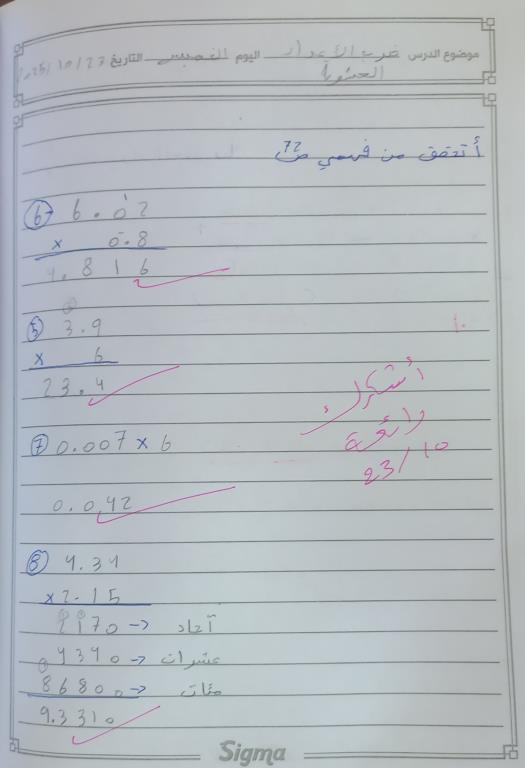 موضوع الدرس ضرب الأعداد اليوم الخميس التاريخ 2025/10/23
العشرية
أتحقق من فهمي ص 72
6- 6.02
x 0.8
4.816
5 3.9
x 6
23.4
أشكرك
رائعة
23/10
7 0.007 x 6
0.042
8 4.34
x 2.15
2170 -> آحاد
4340 -> عشرات
86800 -> مئات
9.3310
Sigma